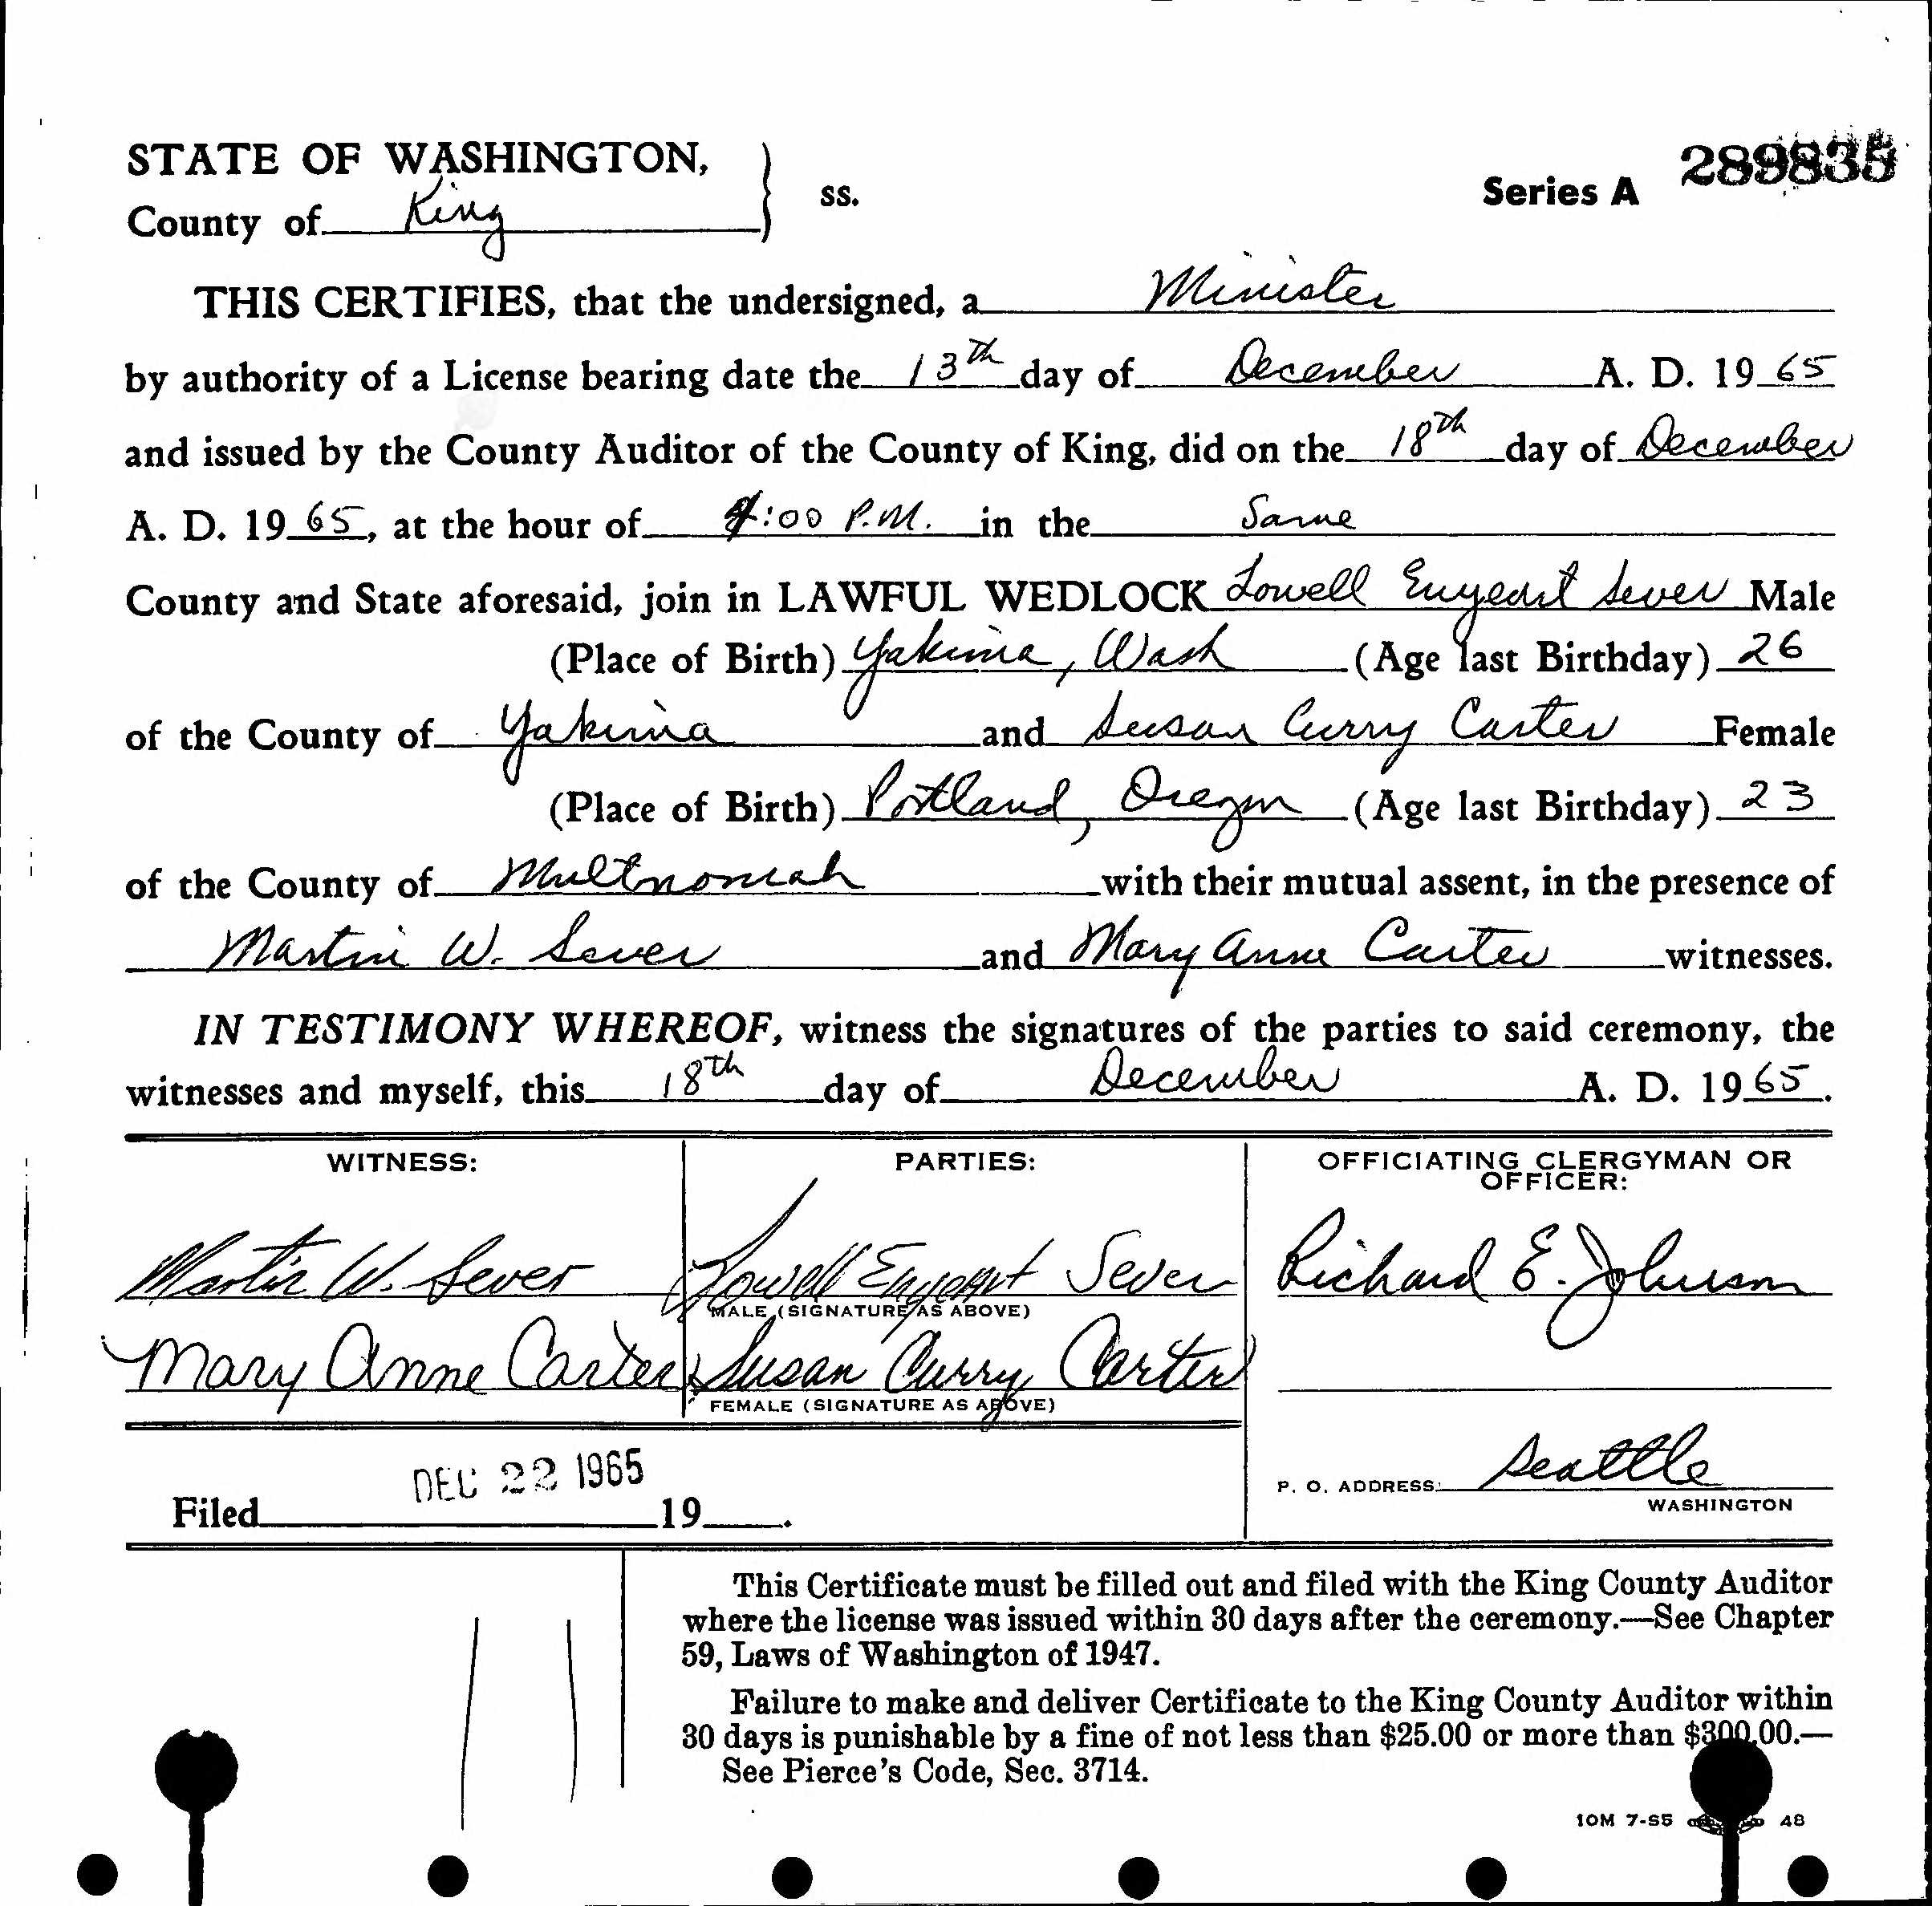 STATE OF WASHINGTON,
County of King ss.
Series A 289835
THIS CERTIFIES, that the undersigned, a Minister
by authority of a License bearing date the 13th day of December A. D. 19 65
and issued by the County Auditor of the County of King, did on the 18th day of December
A. D. 19 65, at the hour of 4:00 P.M. in the Same
County and State aforesaid, join in LAWFUL WEDLOCK Lowell Enyeart Sever Male
(Place of Birth) Yakima, Wash (Age last Birthday) 26
of the County of Yakima and Susan Curry Carter Female
(Place of Birth) Portland, Oregon (Age last Birthday) 23
of the County of Multnomah with their mutual assent, in the presence of
Martin W. Sever and Mary Anne Carter witnesses.
IN TESTIMONY WHEREOF, witness the signatures of the parties to said ceremony, the
witnesses and myself, this 18th day of December A. D. 19 65.
WITNESS: PARTIES: OFFICIATING CLERGYMAN OR
OFFICER:
Martin W. Sever Lowell Enyeart Sever Richard E. Johnson
MALE (SIGNATURE AS ABOVE)
Mary Anne Carter Susan Curry Carter
FEMALE (SIGNATURE AS ABOVE)
DEC 22 1965
Filed 19 .
P. O. ADDRESS: Seattle
WASHINGTON
This Certificate must be filled out and filed with the King County Auditor
where the license was issued within 30 days after the ceremony.—See Chapter
59, Laws of Washington of 1947.
Failure to make and deliver Certificate to the King County Auditor within
30 days is punishable by a fine of not less than $25.00 or more than $300.00.—
See Pierce's Code, Sec. 3714.
10M 7-55 48